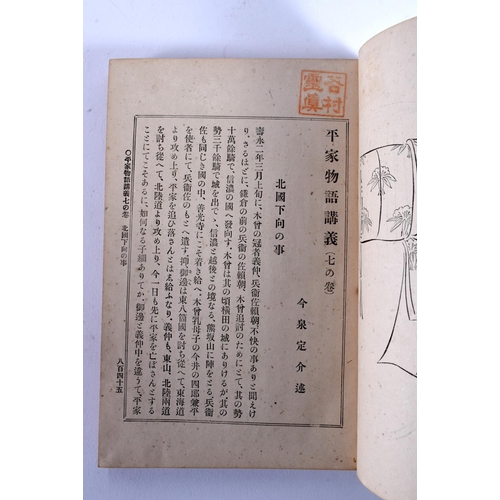 谷村
霊眞
平家物語講義（七の卷）
今泉定介述
北國下向の事
壽永二年三月上旬に、木曾の冠者義仲、兵衞佐賴朝、不快の事ありと聞えけ
り。さるほどに、鎌倉の前の兵衞佐賴朝、木曾追討のためにとて、其の勢
十萬餘騎で、信濃の國へ發向す。木曾は其の頃橫田の城にありけるが、其の
勢三千餘騎で、城を出でて、信濃と越後との境なる、熊坂山に陣をとる。兵衞
佐も同じき國の中、善光寺にこそ着き給へ。木曾乳母子の今井の四郎兼平
を使者にて、兵衞佐のもとへ遣す。抑、御邊は東八箇國を討ち從へて、東海道
より攻め上り、平家を追ひ落さんとはゑ給ふなり。義仲も、東山、北陸兩道
を討ち從へて、北陸道より攻め上り、今一日も先に平家を亡ぼさんとする
ことにてこそあるに、如何なる子細ありてか、御邊と義仲中を違うて、平家
〇平家物語講義七の卷　北國下向の事
八百四十五